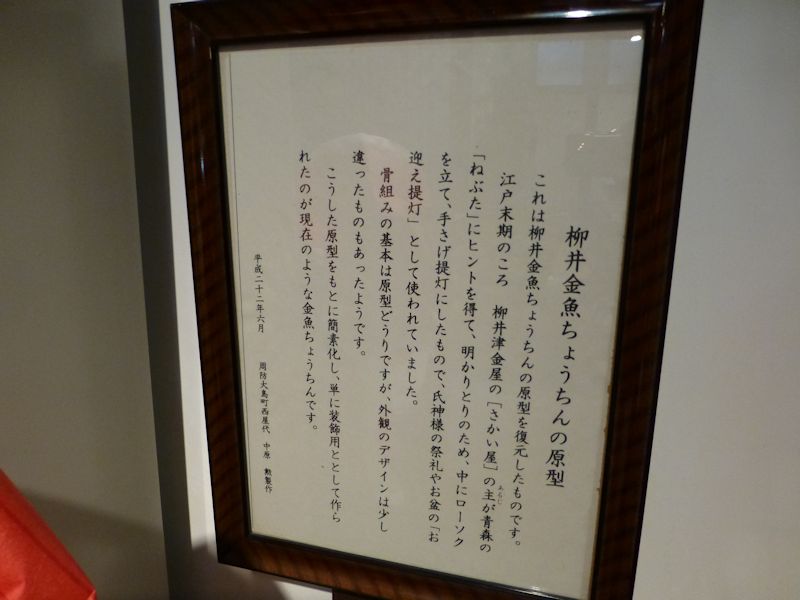 柳井金魚ちょうちんの原型
これは柳井金魚ちょうちんの原型を復元したものです。
江戸末期のころ 柳井津金屋の「さかい屋」の主が青森の
あるじ
「ねぶた」にヒントを得て、明かりとりのため、中にローソク
を立て、手さげ提灯にしたもので、氏神様の祭礼やお盆の「お
迎え提灯」として使われていました。
骨組みの基本は原型どうりですが、外観のデザインは少し
違ったものもあったようです。
こうした原型をもとに簡素化し、単に装飾用ととして作ら
れたのが現在のような金魚ちょうちんです。
平成二十二年六月 周防大島町西屋代 中原 勲製作